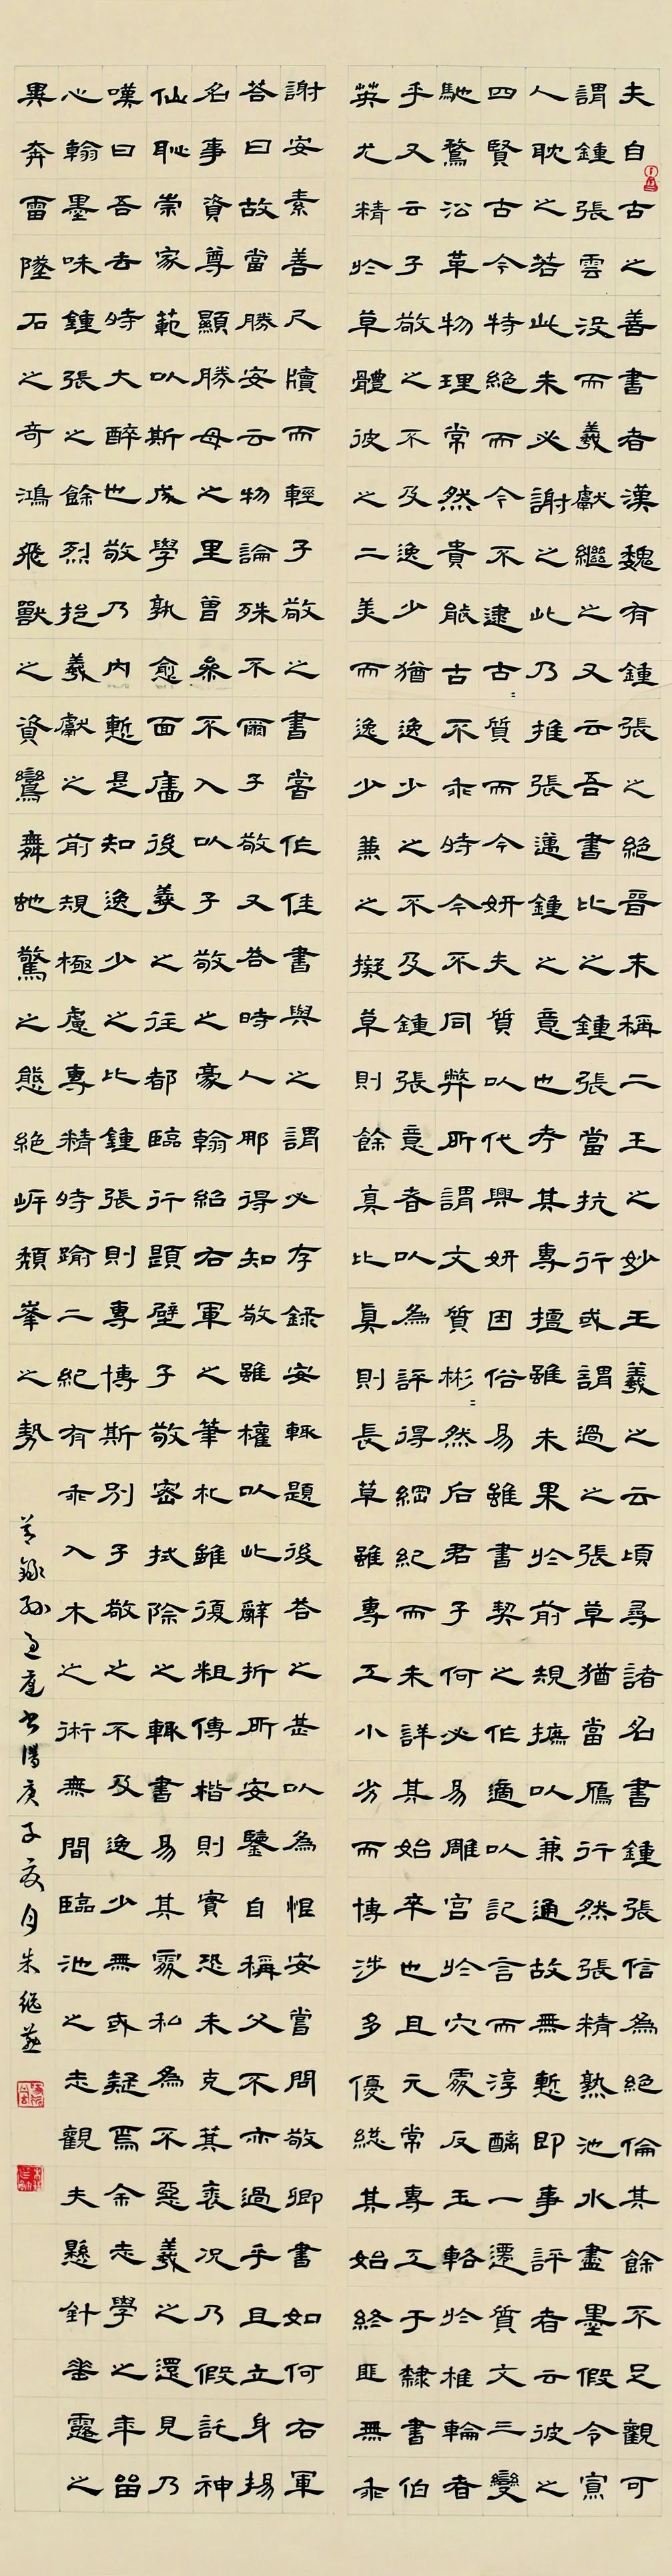 夫自古之善書者漢魏有鍾張之絕晉末稱二王之妙王羲之云頃尋諸名書鍾張信為絕倫其餘不足觀可
謂鍾張雲没而羲獻繼之又云吾書比之鍾張當抗行或謂過之張草猶當鴈行然張精熟池水盡墨假令寡
人耽之若此未必謝之此乃推張邁鍾之意也考其專擅雖未果於前規摭以兼通故無慙即事評者云彼之
四賢古今特絕而今不逮古=質而今妍夫質以代興妍因俗易雖書契之作適以記言而淳醨一遷質文三變
馳騖沿革物理常然貴能古不乖時今不同弊所謂文質彬=然后君子何必易雕宮於穴處反玉輅於椎輪者
乎又云子敬之不及逸少猶逸少之不及鍾張意者以為評得綱紀而未詳其始卒也且元常專工于隸書伯
英尤精於草體彼之二美而逸少兼之擬草則餘真比真則長草雖專工小劣而博涉多優総其始終匪無乖
謝安素善尺牘而輕子敬之書嘗作佳書與之謂必存録安輒題後荅之甚以為恨安嘗問敬卿書如何右軍
荅曰故當勝安云物論殊不爾子敬又荅時人那得知敬雖權以此辭折所安鑒自稱父不亦過乎且立身揚
名事資尊顯勝母之里曾參不入以子敬之豪翰紹右軍之筆札雖復粗傳楷則實恐未克箕裘況乃假託神
仙恥崇家範以斯成學孰愈面牆後羲之往都臨行題壁子敬密拭除之輒書易其處私為不惡羲之還見乃
嘆曰吾去時大醉也敬乃內慙是知逸少之比鍾張則專博斯別子敬之不及逸少無或疑焉余志學之年留
心翰墨味鍾張之餘烈挹羲獻之前規極慮專精時踰二紀有乖入木之術無間臨池之志觀夫懸針垂露之
異奔雷墜石之奇鴻飛獸之資鸞舞虵驚之態絕岍頹峯之勢
节錄孫過庭書譜庚子夏月朱继